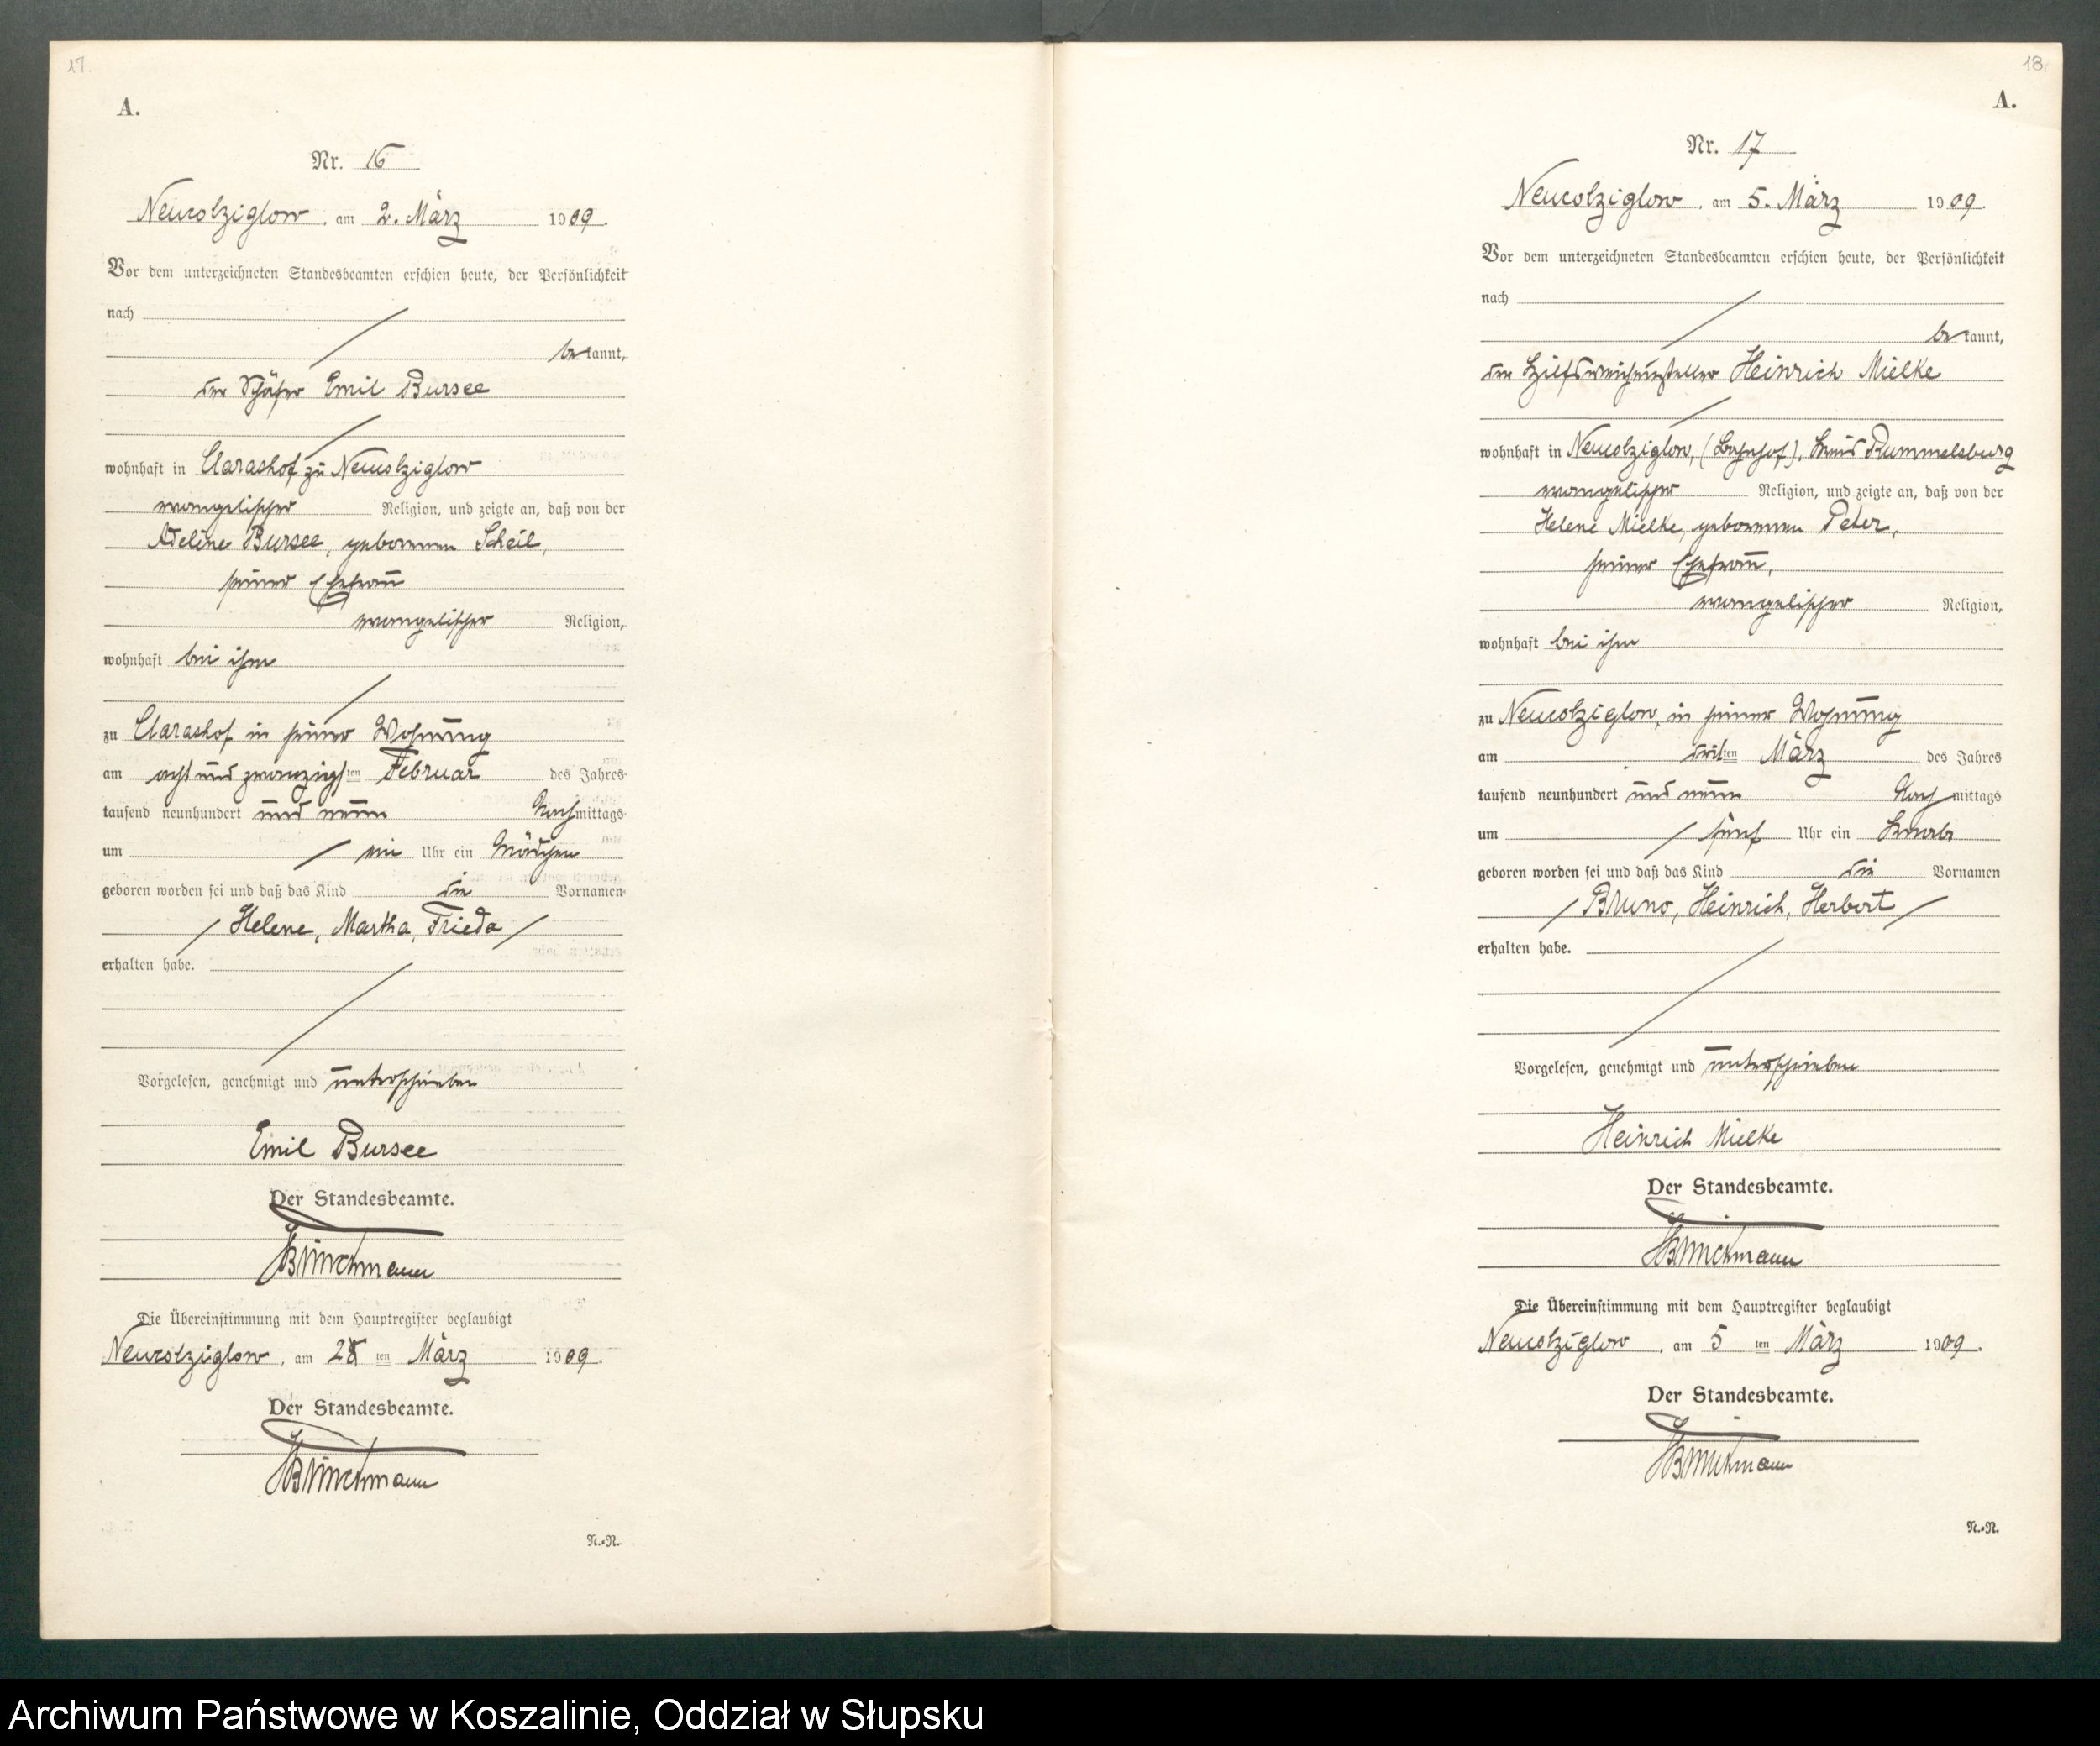 17.
A.
Nr. 16
Neukolziglow, am 2. März 1909.
Vor dem unterzeichneten Standesbeamten erschien heute, der Persönlichkeit
nach
bekannt,
der Schäfer Emil Bursee
wohnhaft in Clarashof zu Neukolziglow
evangelischer Religion, und zeigte an, daß von der
Adeline Bursee, geborenen Scheil,
seiner Ehefrau
evangelischer Religion,
wohnhaft bei ihm
zu Clarashof in seiner Wohnung
am acht und zwanzigsten Februar des Jahres
tausend neunhundert und neun Nachmittags
um ein Uhr ein Mädchen
geboren worden sei und daß das Kind die Vornamen
Helene, Martha, Frieda
erhalten habe.
Vorgelesen, genehmigt und unterschrieben
Emil Bursee
Der Standesbeamte.
Brünckmann
Die Übereinstimmung mit dem Hauptregister beglaubigt
Neukolziglow, am ten März 1909.
Der Standesbeamte.
Brünckmann
N.=N.
18.
A.
Nr. 17
Neukolziglow, am 5. März 1909.
Vor dem unterzeichneten Standesbeamten erschien heute, der Persönlichkeit
nach
bekannt,
der Hilfsweichensteller Heinrich Mielke
wohnhaft in Neukolziglow, (Bahnhof), Kreis Rummelsburg
evangelischer Religion, und zeigte an, daß von der
Helene Mielke, geborenen Peter,
seiner Ehefrau,
evangelischer Religion,
wohnhaft bei ihm
zu Neukolziglow, in seiner Wohnung
am dritten März des Jahres
tausend neunhundert und neun Nachmittags
um fünf Uhr ein Knabe
geboren worden sei und daß das Kind die Vornamen
Bruno, Heinrich, Herbert
erhalten habe.
Vorgelesen, genehmigt und unterschrieben
Heinrich Mielke
Der Standesbeamte.
Brünckmann
Die Übereinstimmung mit dem Hauptregister beglaubigt
Neukolziglow, am 5 ten März 1909.
Der Standesbeamte.
Brünckmann
N.=N.
Archiwum Państwowe w Koszalinie, Oddział w Słupsku